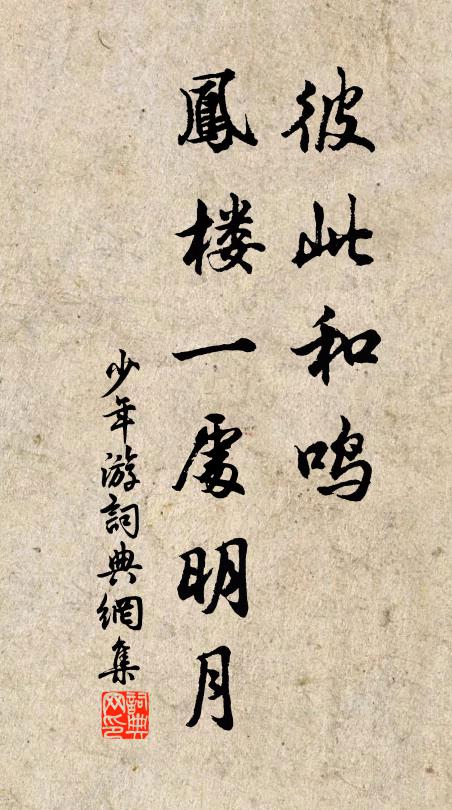 彼此和鸣
鳳楼一處明月
少年游詞典網集
詞典网印